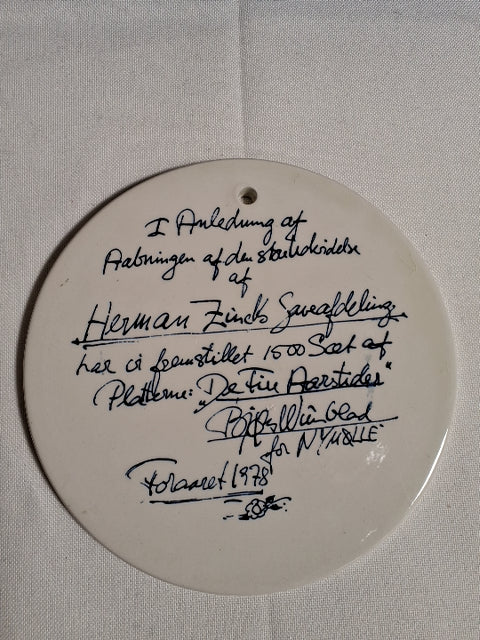 I Anledning af
Aabningen af den store udvidelse
af
Herman Zincks Gaveafdeling
har vi fremstillet 1500 Sæt af
Platterne: „De Fire Aarstider"
Bjørn Wiinblad
for NYMØLLE
Foraaret 1978